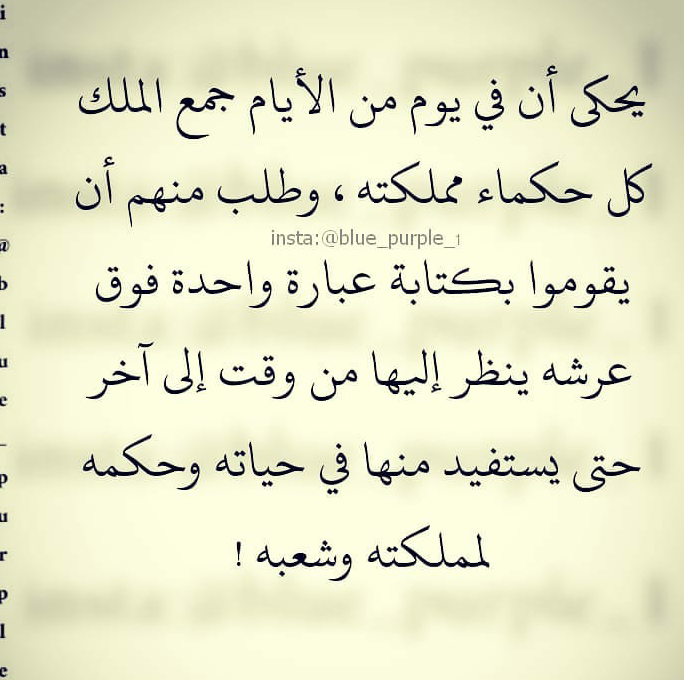 يحكى أن في يوم من الأيام جمع الملك
كل حكماء مملكته ، وطلب منهم أن
insta:@blue_purple_1
يقوموا بكتابة عبارة واحدة فوق
عرشه ينظر إليها من وقت إلى آخر
حتى يستفيد منها في حياته وحكمه
لمملكته وشعبه !
insta:@blue_purple